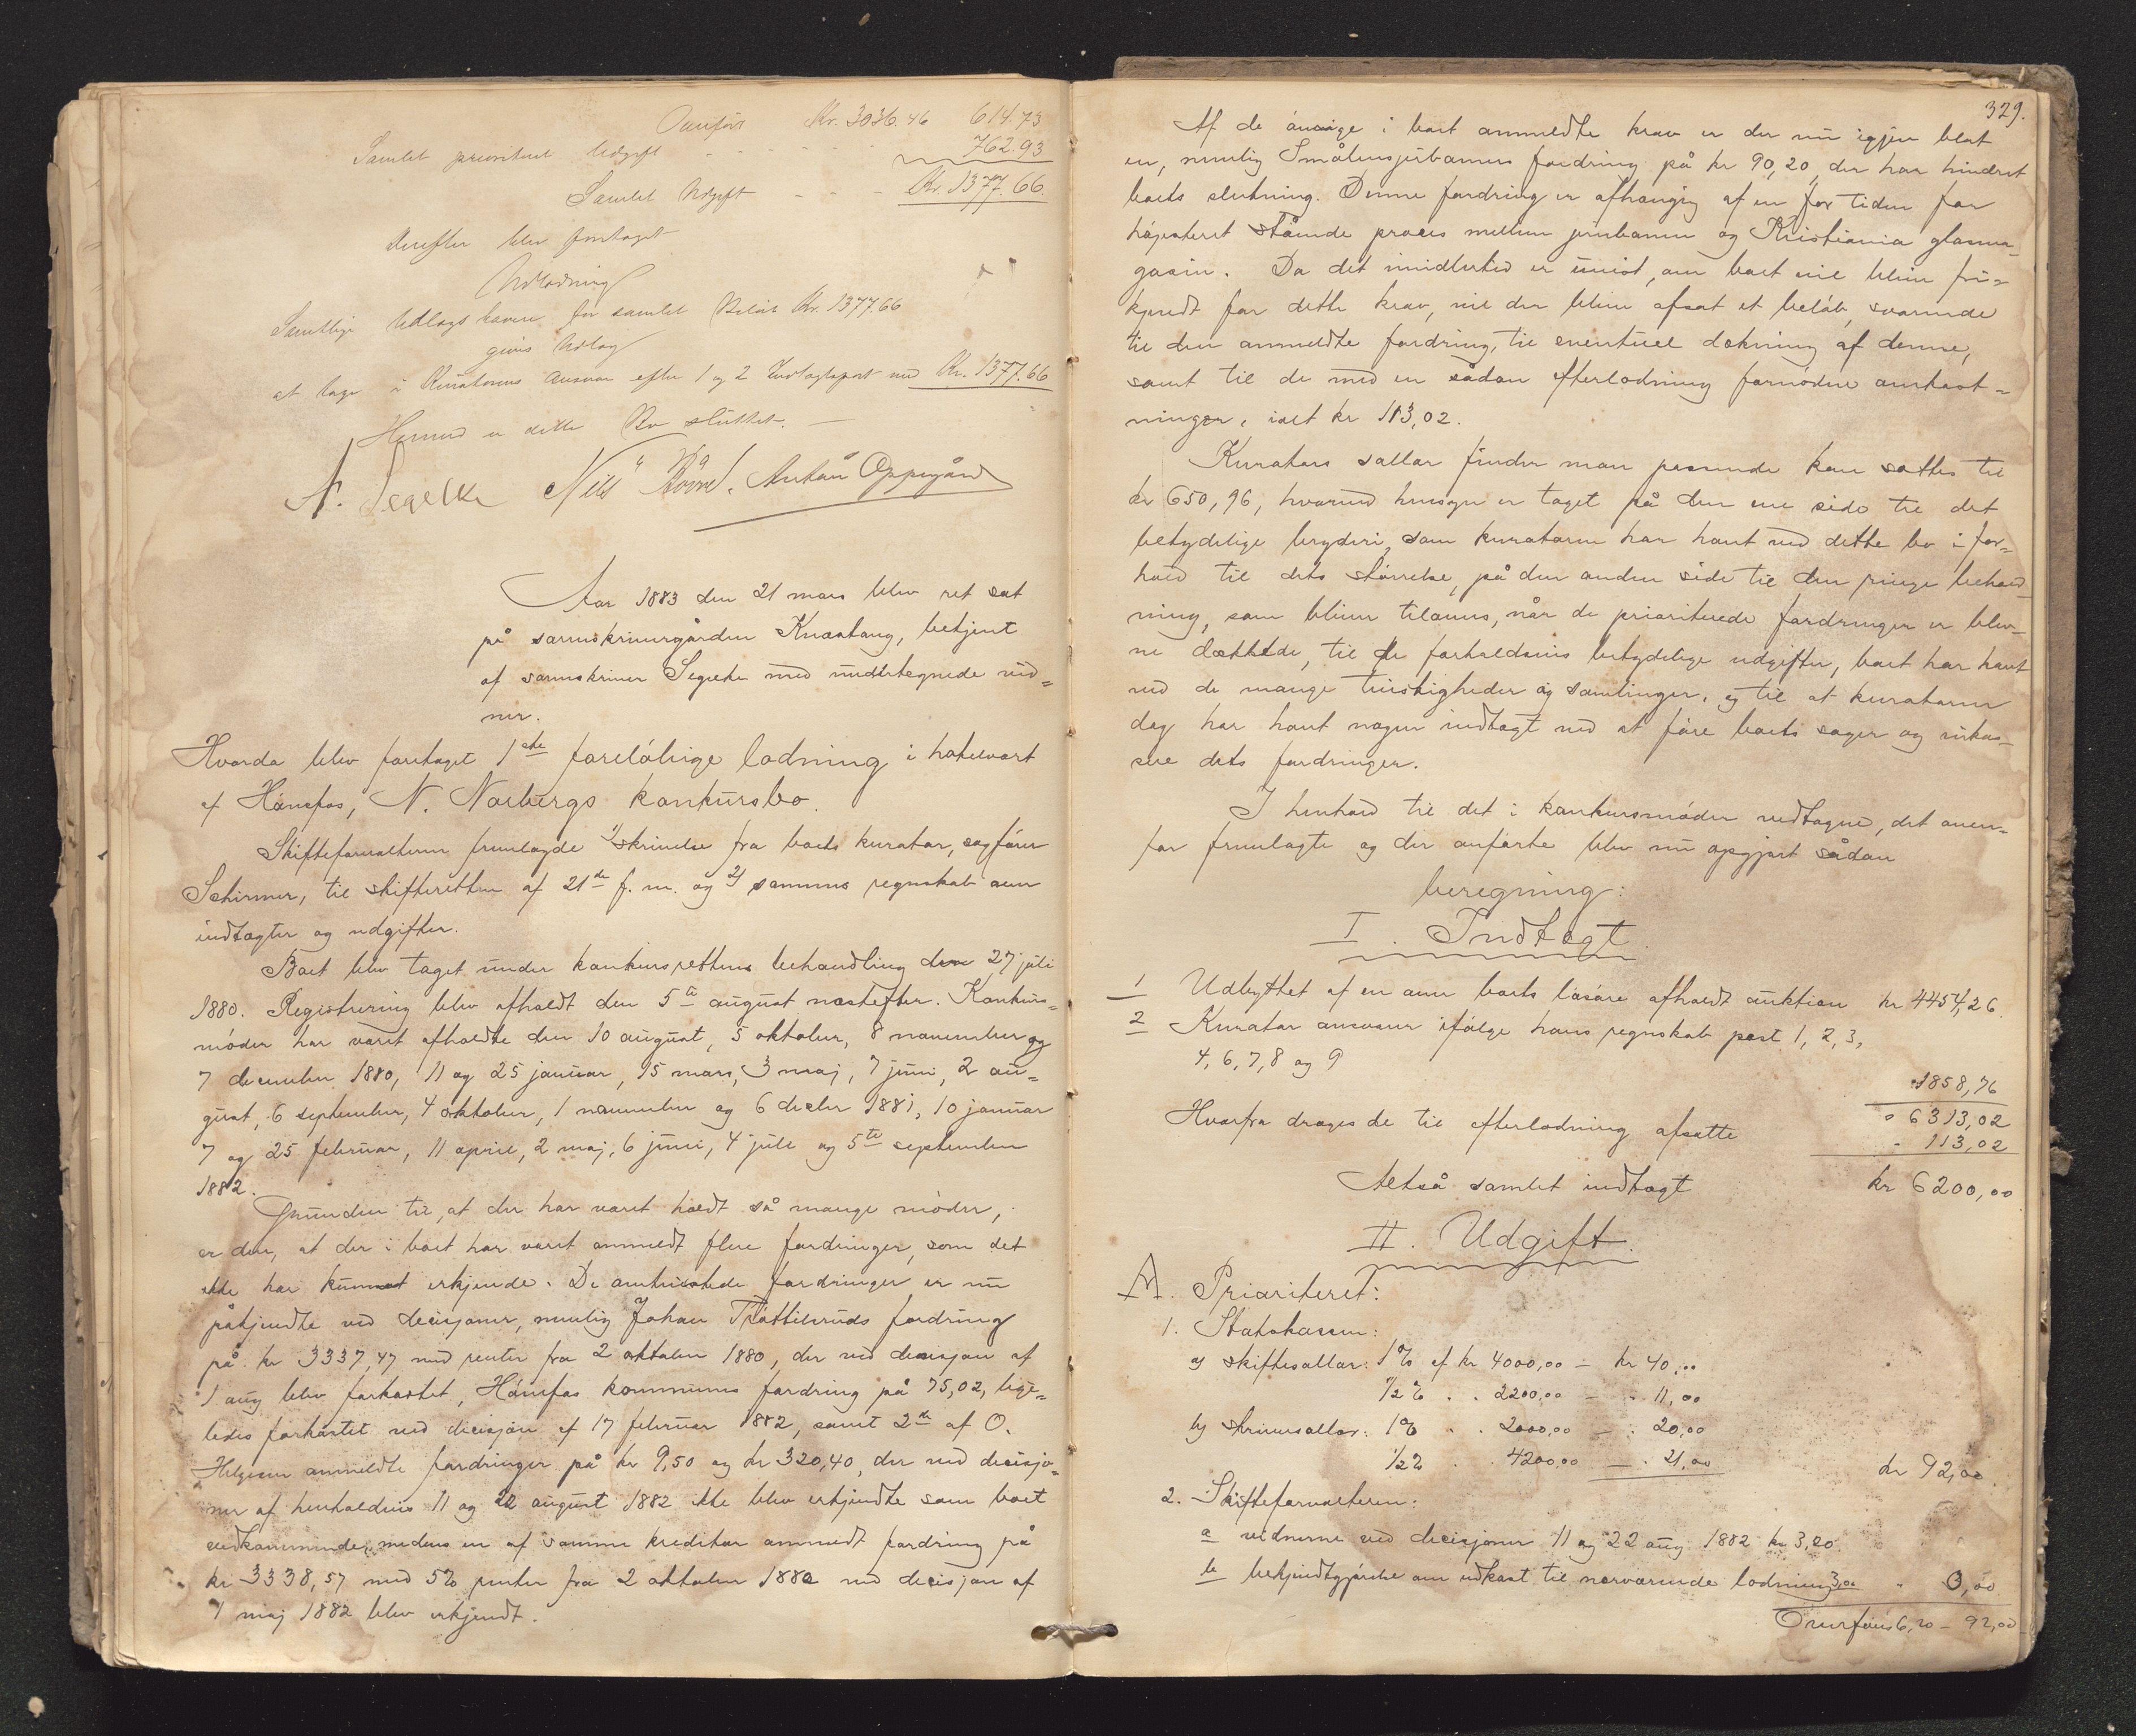 Overført Kr. 3036.46 614.73
Samlet prioriteret Udgift - - - - - 762.93
Samlet Udgift - - - Kr. 1377.66
Derefter blev foretaget
Udlodning
Samtlige Udlægshavere for samlet Beløb Kr. 1377.66
gives Udlæg
at tage i Kuratorens Ansvar efter 1 og 2 Indtægtspost med Kr. 1377.66
Hermed er dette Bo sluttet. —
A. Segelke Nils Anton Oppegård
Aar 1883 den 21 mars blev ret sat
på sorenskrivergården Knastang, betjent
af sorenskriver Segelke med undertegnede vid=
ner.
Hvorda blev foretaget 1ste foreløbige lodning i hotelvært
af Hønefos, N. Norbergs konkursbo.
Skifteforvalteren fremlagde 1) skrivelse fra boets kurator, sagfører
Schirmer, til skifteretten af 21de f. m. og 2) sammes regnskab over
indtægter og udgifter.
Boet blev taget under konkursrettens behandling den 27 juli
1880. Registrering blev afholdt den 5te august næstefter. Konkurs=
møder har været afholdte den 10 august, 5 oktober, 8 november og
7 december 1880, 11 og 25 januar, 15 mars, 3 maj, 7 juni, 2 au=
gust, 6 september, 4 oktober, 1 november og 6 decbr 1881, 10 januar
7 og 25 februar, 11 april, 2 maj, 6 juni, 4 juli og 5te september
1882.
Grunden til, at der har været holdt så mange møder,
er den, at der i boet har været anmeldt flere fordringer, som det
ikke har kunnet erkjende. De omtvistede fordringer er nu
påkjendte ved decisjoner, nemlig Johan Tsruds fordring
på kr 3337,47 med renter fra 2 oktober 1880, der ved decisjon af
1 aug blev forkastet, Hønefos kommunes fordring på 75,02, lige=
ledes forkastet ved decisjon af 17 februar 1882, samt 2de af O.
Helgesen anmeldte fordringer på kr 9,50 og kr 320,40, der ved decisjo=
ner af henholdsvis 11 og 22 august 1882 ikke blev erkjendte som boet
vedkommende, medens en af samme kreditor anmeldt fordring på
kr 3338,57 med 5% renter fra 2 oktober 1880 ved decisjon af
1 maj 1882 blev erkjendt.
329.
Af de øvrige i boet anmeldte krav er der nu igjen blot
en, nemlig Smålensjernbanens fordring på kr 90,20, der har hindret
boets slutning. Denne fordring er afhængig af en for tiden for
højesteret stående proces mellem jernbanen og Kristiania glasma=
gasin. Da det imidlertid er uvist, om boet vil blive fri=
kjendt for dette krav, vil der blive afsat et beløb, svarende
til den anmeldte fordring, til eventuel dækning af denne,
samt til de med en sådan efterlodning fornødne omkost=
ninger, ialt kr 113,02.
Kurators sallær finder man passende kan sættes til
kr 650,96, hvorved hensyn er taget på den ene side til det
betydelige bryderi, som kuratoren har havt med dette bo i for=
hold til dets størrelse, på den anden side til den ringe behold=
ning, som bliver tilovers, når de prioriterede fordringer er blev=
ne dækkede, til de forholdsvis betydelige udgifter, boet har havt
ved de mange tvistigheder og samlinger, og til at kuratoren
dog har havt nogen indtægt ved at føre boets sager og inkas=
sere dets fordringer.
I henhold til det i konkursmøder vedtagne, det oven=
for fremlagte og der anførte blev nu opgjort sådan
beregning:
I. Indtægt.
1 Udbyttet af en over boets løsøre afholdt auktion kr 4454,26.
2 Kurator ansvarer ifølge hans regnskab post 1, 2, 3,
4, 6, 7, 8 og 9 " 1858,76
" 6313,02
Hvorfra drages de til efterlodning afsatte - 113,02
Altså samlet indtægt kr 6200,00
II. Udgift.
A. Prioriteret:
1. Statskassen:
a) skiftesallær: 1% af kr 4000,00 — kr 40,00
1/2% . . 2200,00 — . 11,00
b) skriversallær: 1% . . 2000,00 — . 20,00
1/2% . . 4200,00 — . 21,00 kr 92,00.
2. Skifteforvalteren:
a vidnerne ved decisjoner 11 og 22 aug 1882 kr 3,20.
b bekjendtgjørelse om udkast til nærværende lodning 3,00 " 0,00
Overføres 6,20 – 92,00